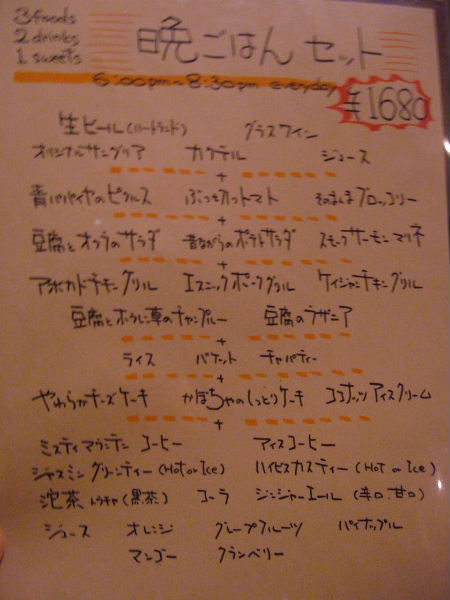 3 foods
2 drinks
1 sweets
晩ごはん セット
6:00pm~8:30pm everyday
¥1680
生ビール(ハートランド) グラスワイン
オリジナルサングリア カクテル ジュース
+
青パパイヤのピクルス ぶつ切りトマト そのまんまブロッコリー
+
豆腐とオクラのサラダ 昔ながらのポテトサラダ スモークサーモンマリネ
+
アボカドチキングリル エスニックポークグリル ケイジャンチキングリル
豆腐とホウレン草のチャンプルー 豆腐のラザニア
+
ライス バケット チャパティー
+
やわらかチーズケーキ かぼちゃのしっとりケーキ ココナッツアイスクリーム
+
ミスティマウンテン コーヒー アイスコーヒー
ジャスミングリーンティー(Hot or Ice) ハイビスカスティー(Hot or Ice)
沱茶 トウチャ(黒茶) コーラ ジンジャーエール(辛口、甘口)
ジュース オレンジ グレープフルーツ パイナップル
マンゴー クランベリー